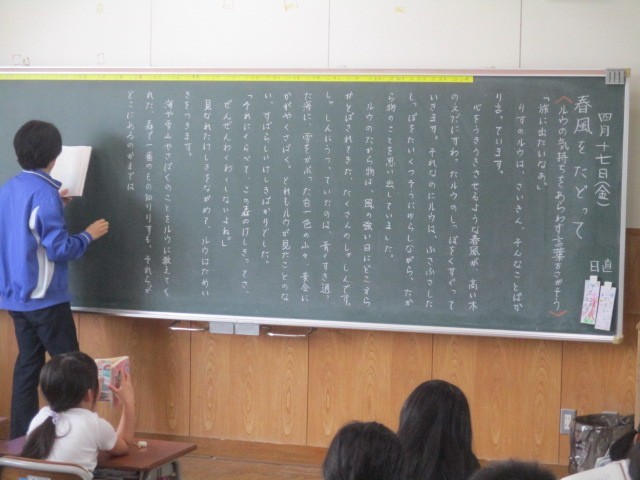 四月十七日(金)
春風をたどって
〈ルウの気持ちをあらわす言葉をさがそう〉
「旅に出たいなあ。」
りすのルウは、さいきん、そんなことばか
り言っています。
心をうきうきさせるような春風が、高い木
のえだにすわったルウのしっぽをくすぐって
いきます。それなのにルウは、ふさふさした
しっぽをたいくつそうにゆらしながら、たか
ら物のことを思い出していました。
ルウのたから物は、風の強い日にどこから
かとばされてきた、たくさんのしゃしんです。
しゃしんにうつっていたのは、青くすき通っ
た海に、雪をかぶった白一色の山々、黄金に
かがやくさばく。どれもルウが見たことのな
い、すばらしいけしきばかりでした。
「それにくらべて、この森のけしきってさ、
ぜんぜんわくわくしないよね。」
見なれたけしきをながめて、ルウはためい
きをつきます。
海や雪山やさばくのことをルウに教えてく
れた、森で一番のもの知りりすも、それらが
どこにあるのかまでは
日直